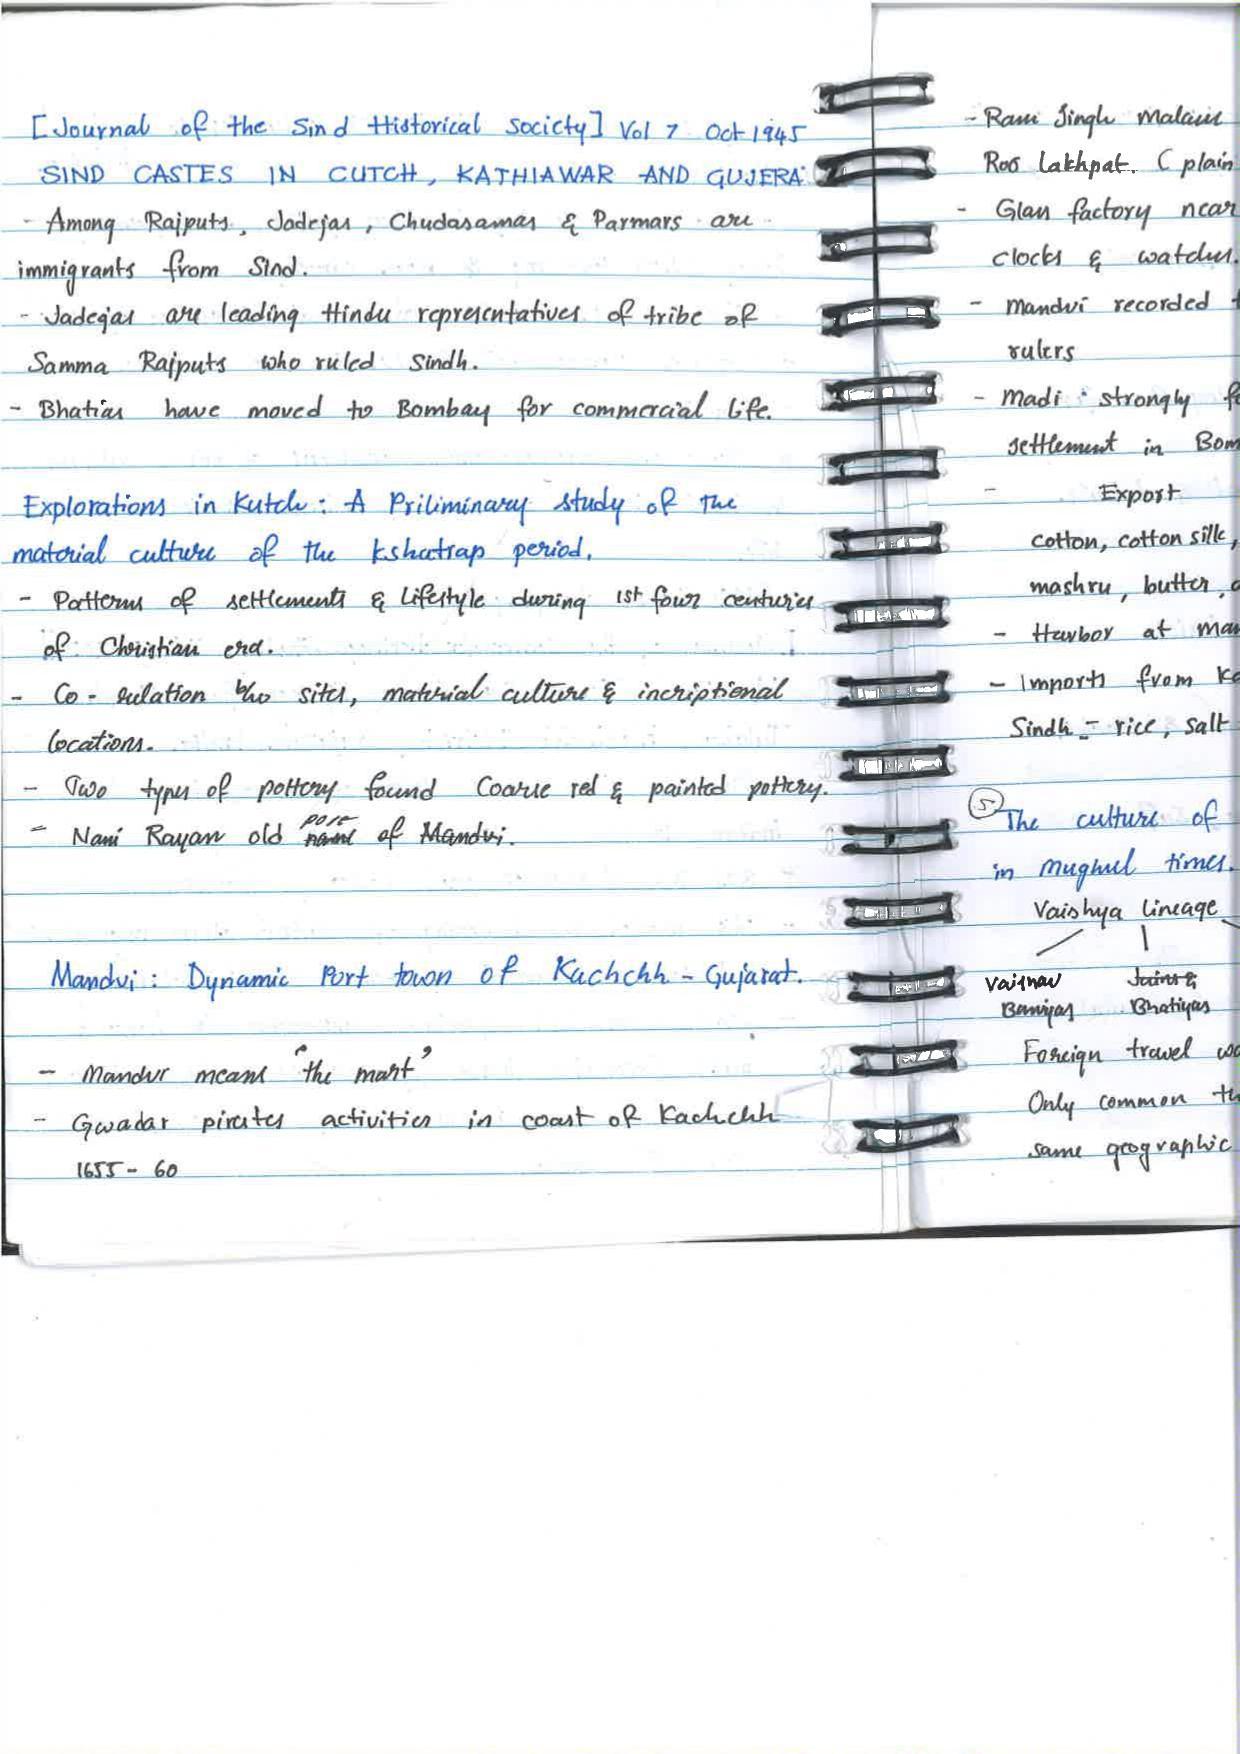 [Journal of the Sind Historical Society] Vol 7 Oct 1945
SIND CASTES IN CUTCH, KATHIAWAR AND GUJERA
- Among Rajputs, Jadejas, Chudasamas & Parmars are
immigrants from Sind.
- Jadegas are leading Hindu representatives of tribe of
Samma Rajputs who ruled Sindh.
- Bhatias have moved to Bombay for commercial life.
Explorations in Kutch: A Priliminary study of the
material culture of the kshatrap period.
- Patterns of settlements & lifestyle during 1st four centuries
of Christian era.
- Co-relation b/w sites, material culture & incriptional
locations.
- Two types of pottery found Coarse red & painted pottery.
- Nani Rayan old port of Mandvi.
Mandvi: Dynamic Port town of Kachchh - Gujarat.
- Mandvi means "the mart"
- Gwadar pirates activities in coast of Kachchh
1655-60
- Ram Singh Malam
Rao Lakhpat. (plain
- Glass factory near
clocks & watches.
- Mandvi recorded
rulers
- Madi: strongly
settlement in Bom
- Export
cotton, cotton silk,
mashru, butter,
- Harbor at Man
- Imports from
Sindh - rice, salt
5 The culture of
in Mughul times.
Vaishya lineage
Vaisnav Jains &
Baniyas Bhatiyas
Foreign travel
Only common
same geographic